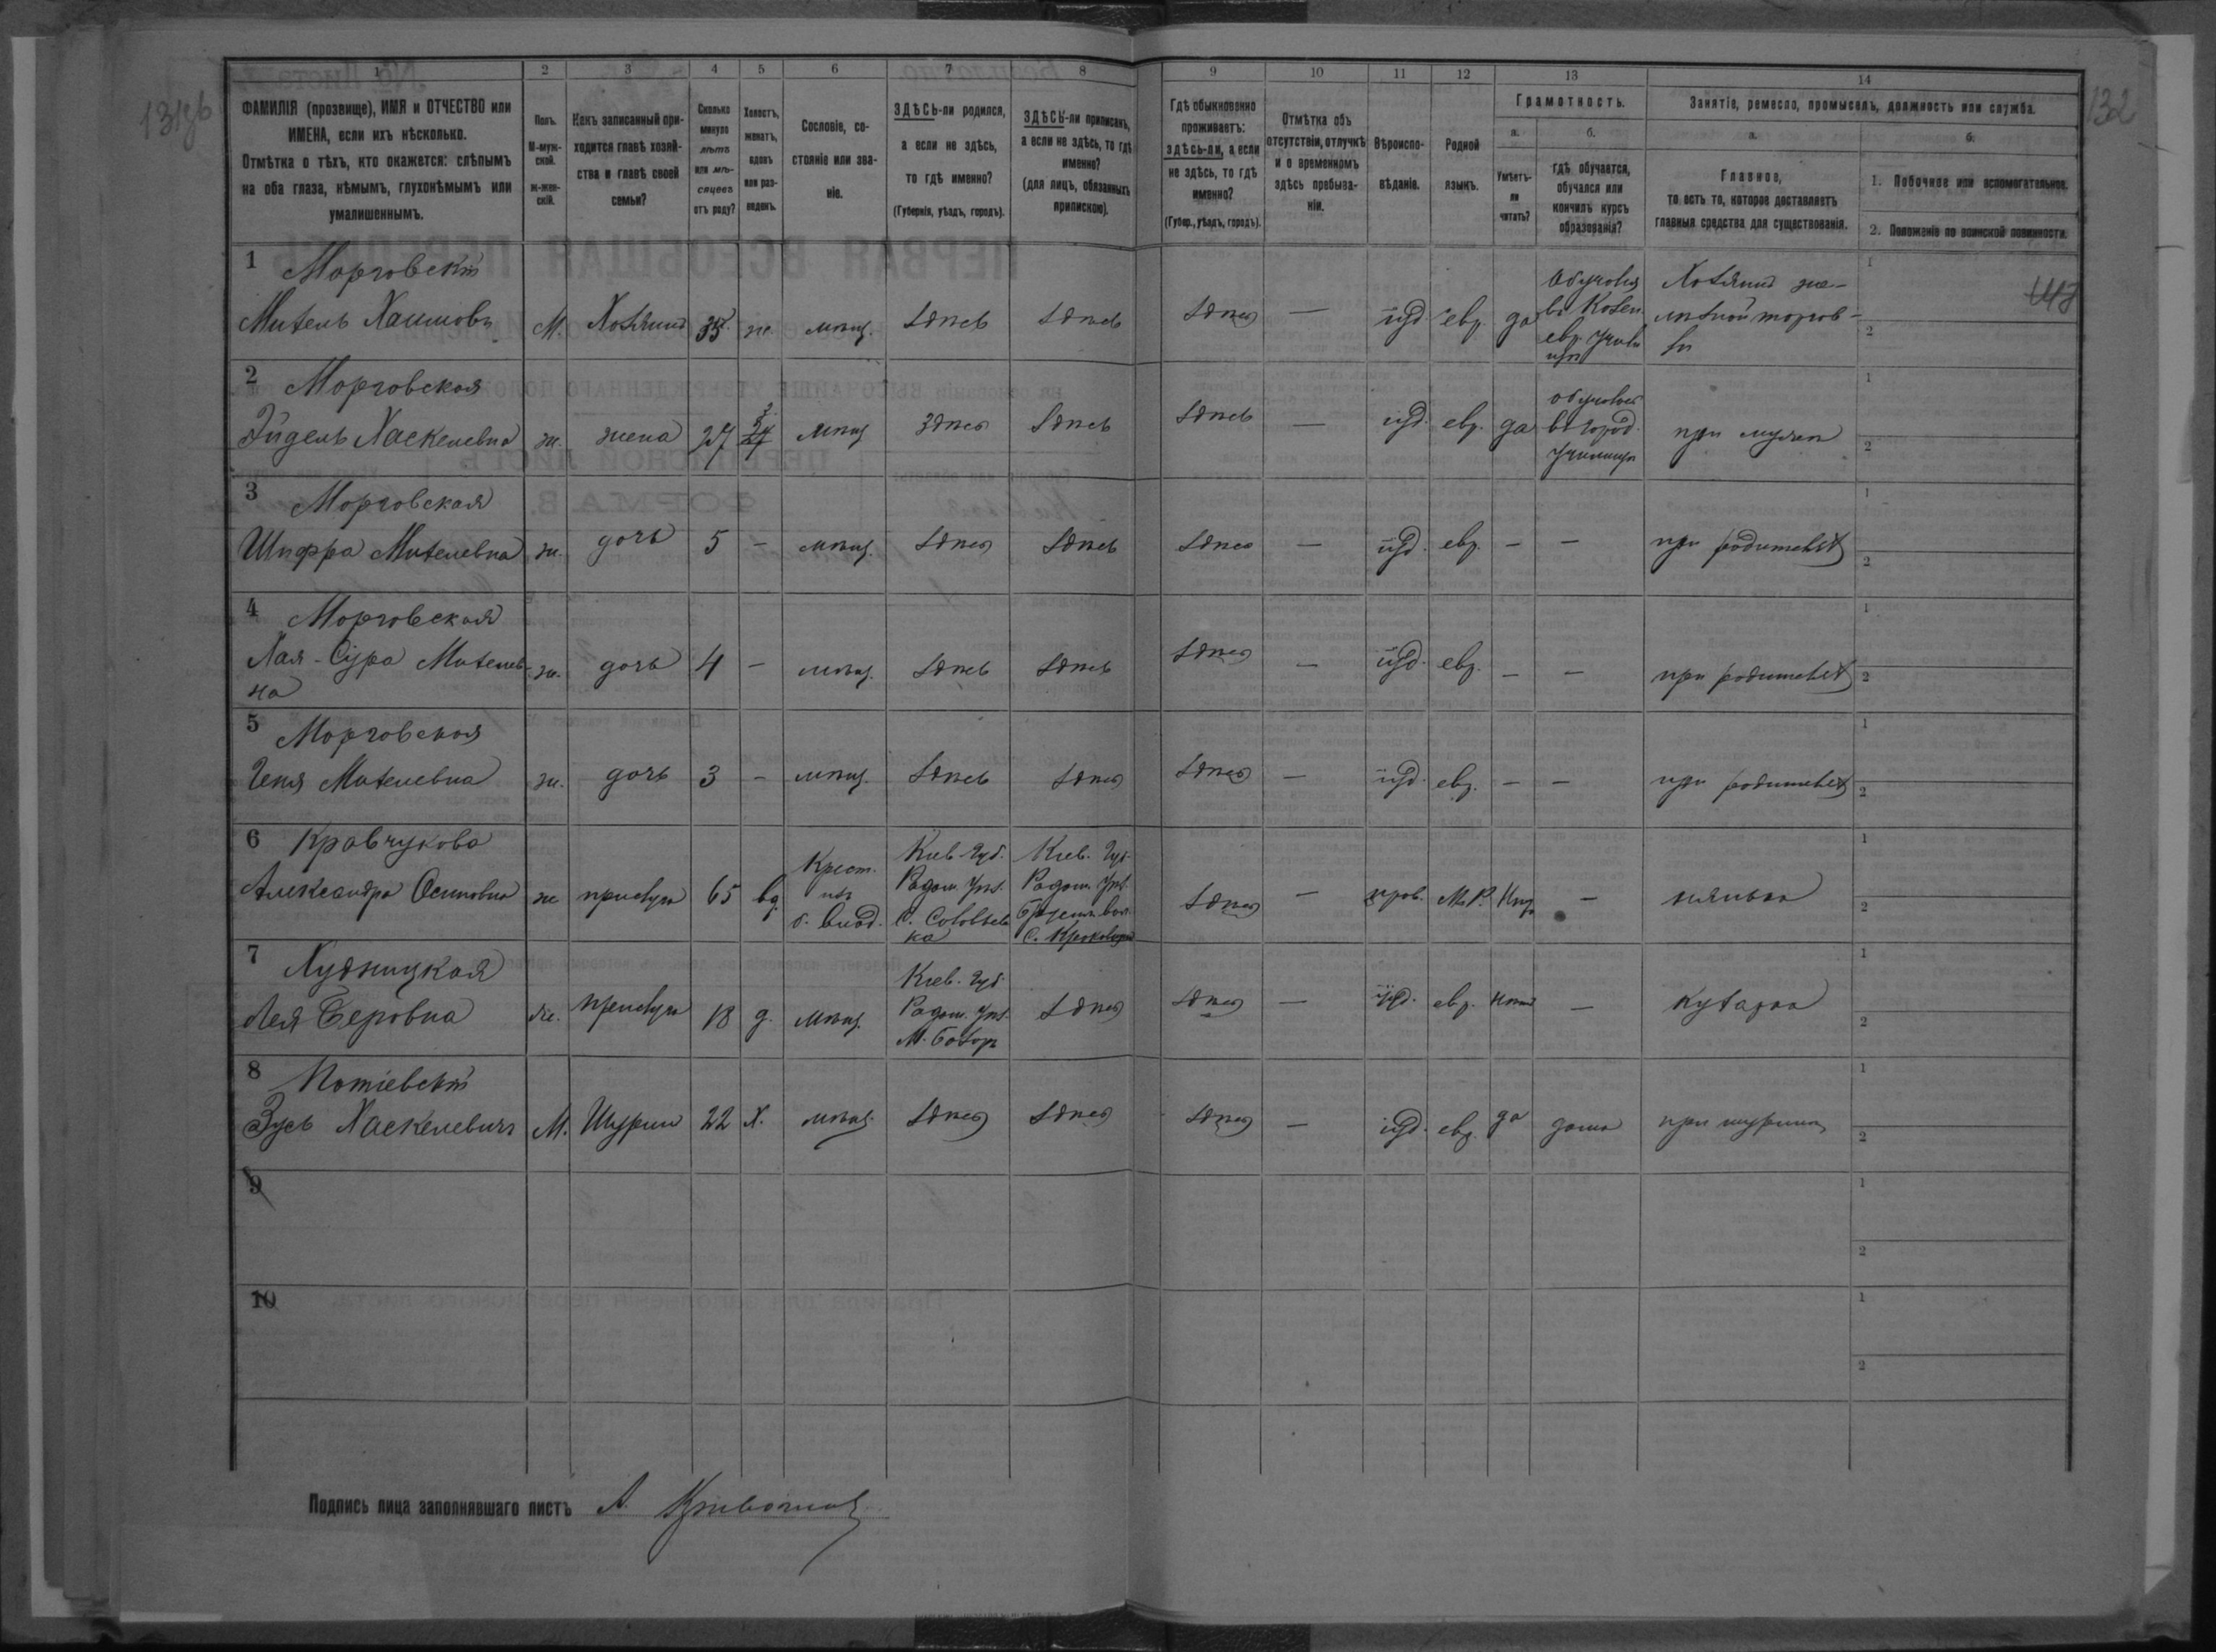 131об
132
1 2 3 4 5 6 7 8 9 10 11 12 13 14
ФАМИЛІЯ (прозвище), ИМЯ и ОТЧЕСТВО или
ИМЕНА, если ихъ нѣсколько.
Отмѣтка о тѣхъ, кто окажется: слѣпымъ
на оба глаза, нѣмымъ, глухонѣмымъ или
умалишеннымъ.
Полъ.
М-муж-
ской.
ж-жен-
скій.
Какъ записанный при-
ходится главѣ хозяй-
ства и главѣ своей
семьи?
Сколько
минуло
лѣтъ
или мѣ-
сяцевъ
отъ роду?
Холостъ,
женатъ,
вдовъ
или раз-
веденъ.
Сословіе, со-
стояніе или зва-
ніе.
ЗДѢСЬ-ли родился,
а если не здѣсь,
то гдѣ именно?
(Губернія, уѣздъ, городъ).
ЗДѢСЬ-ли приписанъ,
а если не здѣсь, то гдѣ
именно?
(для лицъ, обязанныхъ
припискою).
Гдѣ обыкновенно
проживаетъ:
здѣсь-ли, а если
не здѣсь, то гдѣ
именно?
(Губер., уѣздъ, городъ).
Отмѣтка объ
отсутствіи, отлучкѣ
и о временномъ
здѣсь пребыва-
ніи.
Вѣроиспо-
вѣданіе.
Родной
языкъ.
Грамотность.
а.
Умѣетъ-
ли
читать?
б.
гдѣ обучается,
обучался или
кончилъ курсъ
образованія?
Занятіе, ремесло, промыселъ, должность или служба.
а.
Главное,
то есть то, которое доставляетъ
главныя средства для существованія.
б.
1. Побочное или вспомогательное.
2. Положеніе по воинской повинности.
1 Морговскій
Хаимовъ М. Хозяинъ 35 ж. мѣщ. здѣсь здѣсь здѣсь — іуд. евр. да
Обучался
въ Казен.
евр. учили
щѣ
Хозяинъ же-
лѣзной торгов-
ли
2 Морговская
Эйдель Хаскелевна ж. жена 27 мѣщ. здѣсь здѣсь здѣсь — іуд. евр. да
обучалась
въ город.
училищѣ
при мужѣ
3 Морговская
Шифра ж. дочь 5 — мѣщ. здѣсь здѣсь здѣсь — іуд. евр. — — при родителяхъ
4 Морговская
Хая-Сура
на ж. дочь 4 — мѣщ. здѣсь здѣсь здѣсь — іуд. евр. — — при родителяхъ
5 Морговская
Геня ж. дочь 3 — мѣщ. здѣсь здѣсь здѣсь — іуд. евр. — — при родителяхъ
6 Кравчукова
Александра Осиповна ж прислуга 65 вд.
Крест.
изъ
б. влад.
Кіев. Губ.
Радом. Уѣз.
с. Соловьев
ка
Кіев. Губ.
Радом. Уѣз.
вол.
с.
здѣсь — прав. М.Р. — нянька
7 Худницкая
Лея Беровна ж. прислуга 18 д. мѣщ.
Кіев. Губ.
Радом. Уѣз.
М.
здѣсь здѣсь — іуд. евр. — кухарка
8 Потіевскій
Зусь Хаскелевичъ М. Шуринъ 22 х. мѣщ. здѣсь здѣсь здѣсь — іуд. евр. да дома при шуринѣ
9
10
Подпись лица заполнявшаго листъ А.